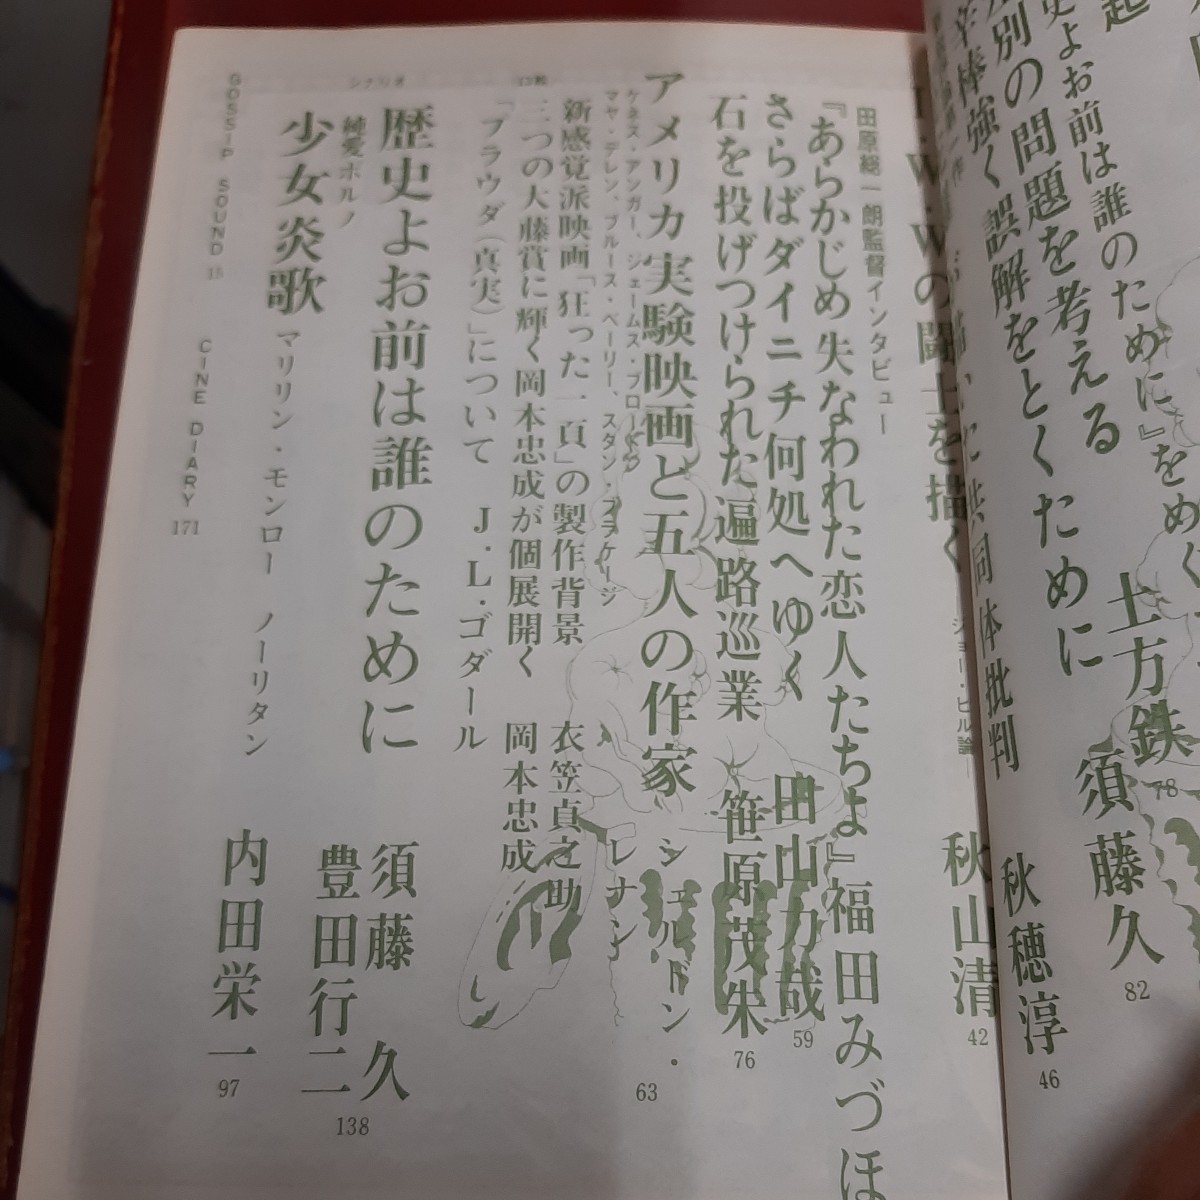 起
78
史よお前は誰のために』をめぐ
別の問題を考える
須藤久
82
辛棒強く誤解をとくために
土方鉄
共同体批判
秋穂淳
46
ジョー・ヒル論
W・Wの闘士を描く
秋山清
42
田原総一朗監督インタビュー
『あらかじめ失なわれた恋人たちよ』福田みづほ
さらばダイニチ何処へゆく
田山力哉
59
石を投げつけられた遍路巡業
笹原茂朱
76
アメリカ実験映画と五人の作家
シェルドン・レナン
63
ケネス・アンガー、ジェームス・ブロートン
マヤ・デレン、ブルース・ベーリー、スタン・ブラケージ
新感覚派映画「狂った一頁」の製作背景
衣笠貞之助
三つの大藤賞に輝く岡本忠成が個展開く
岡本忠成
「プラウダ(真実)」について
J・L・ゴダール
シナリオ
歴史よお前は誰のために
須藤 久
豊田行二
138
純愛ポルノ
少女炎歌
マリリン・モンロー ノーリタン
内田栄一
97
GOSSIP SOUND 15
CINE DIARY 171